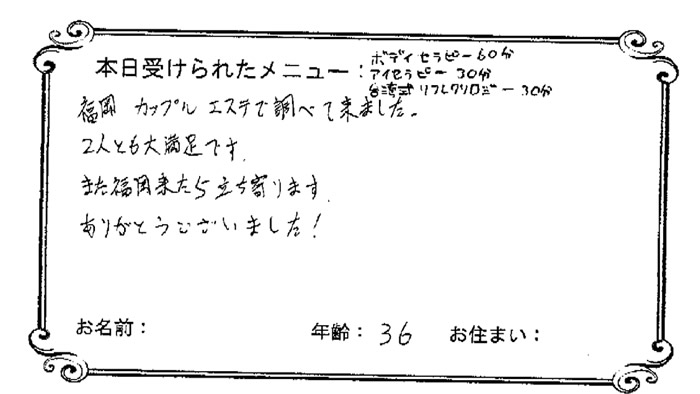 本日受けられたメニュー：ボディセラピー60分
アイセラピー 30分
台湾式リフレクソロジー 30分
福岡 カップル エステで調べて来ました。
2人とも大満足です。
また福岡来たら立ち寄ります。
ありがとうございました！
お名前：
年齢：36
お住まい：